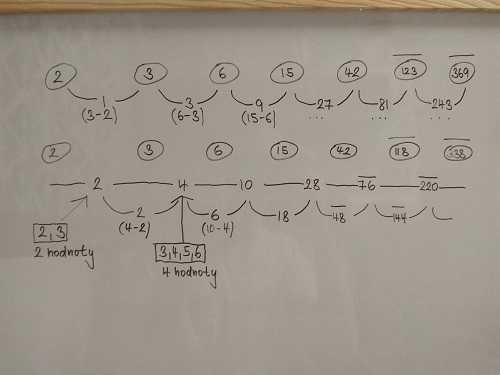 2 3 6 15 42 123 369
1 3 9 27 81 243
(3-2) (6-3) (15-6) ... ... ...
2 3 6 15 42 118 338
2 4 10 28 76 220
2 6 18 48 144
(4-2) (10-4)
2,3
2 hodnoty
3,4,5,6
4 hodnoty